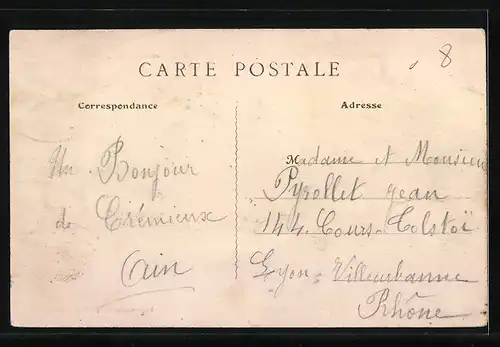 8
CARTE POSTALE
Correspondance
Adresse
Un Bonjour
de Crémieux
Cain
Madame et Monsieur
Pyrollet Jean
144 Cours-Tolstoï
Lyon-Villeurbanne
Rhône